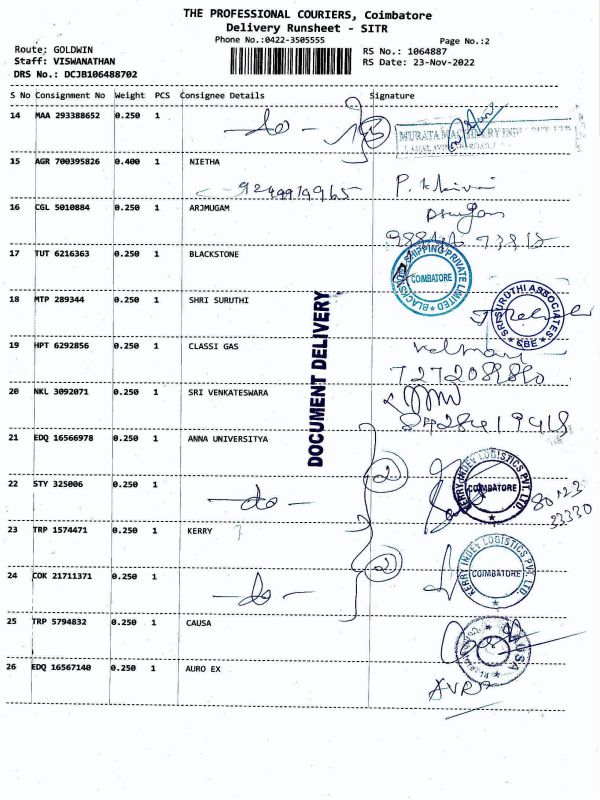 THE PROFESSIONAL COURIERS, Coimbatore
Delivery Runsheet - SITR
Phone No.:0422-3505555
Page No.:2
Route: GOLDWIN
RS No.: 1064887
Staff: VISWANATHAN
RS Date: 23-Nov-2022
DRS No.: DCJB106488702
S No Consignment No Weight PCS Consignee Details Signature
14 MAA 293388652 0.250 1 -do-
15 AGR 700395826 0.400 1 NIETHA
16 CGL 5010884 0.250 1 ARJMUGAM
17 TUT 6216363 0.250 1 BLACKSTONE
BLACKSTONE SHIPPING PRIVATE LIMITED COIMBATORE
18 MTP 289344 0.250 1 SHRI SURUTHI
SRI SURUTHI ASSOCIATES CBE
DOCUMENT DELIVERY
19 HPT 6292856 0.250 1 CLASSI GAS
20 NKL 3092071 0.250 1 SRI VENKATESWARA
21 EDQ 16566978 0.250 1 ANNA UNIVERSITYA
22 STY 325006 0.250 1 -do- 2
KERRY INDEV LOGISTICS PVT. LTD. COIMBATORE
80123
33330
23 TRP 1574471 0.250 1 KERRY
24 COK 21711371 0.250 1 -do- 2
KERRY INDEV LOGISTICS PVT. LTD. COIMBATORE
25 TRP 5794832 0.250 1 CAUSA
26 EDQ 16567140 0.250 1 AURO EX